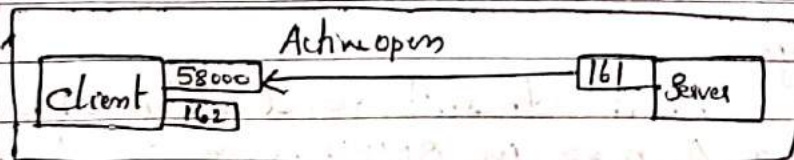 Active open
Client 58000 161 Server
162